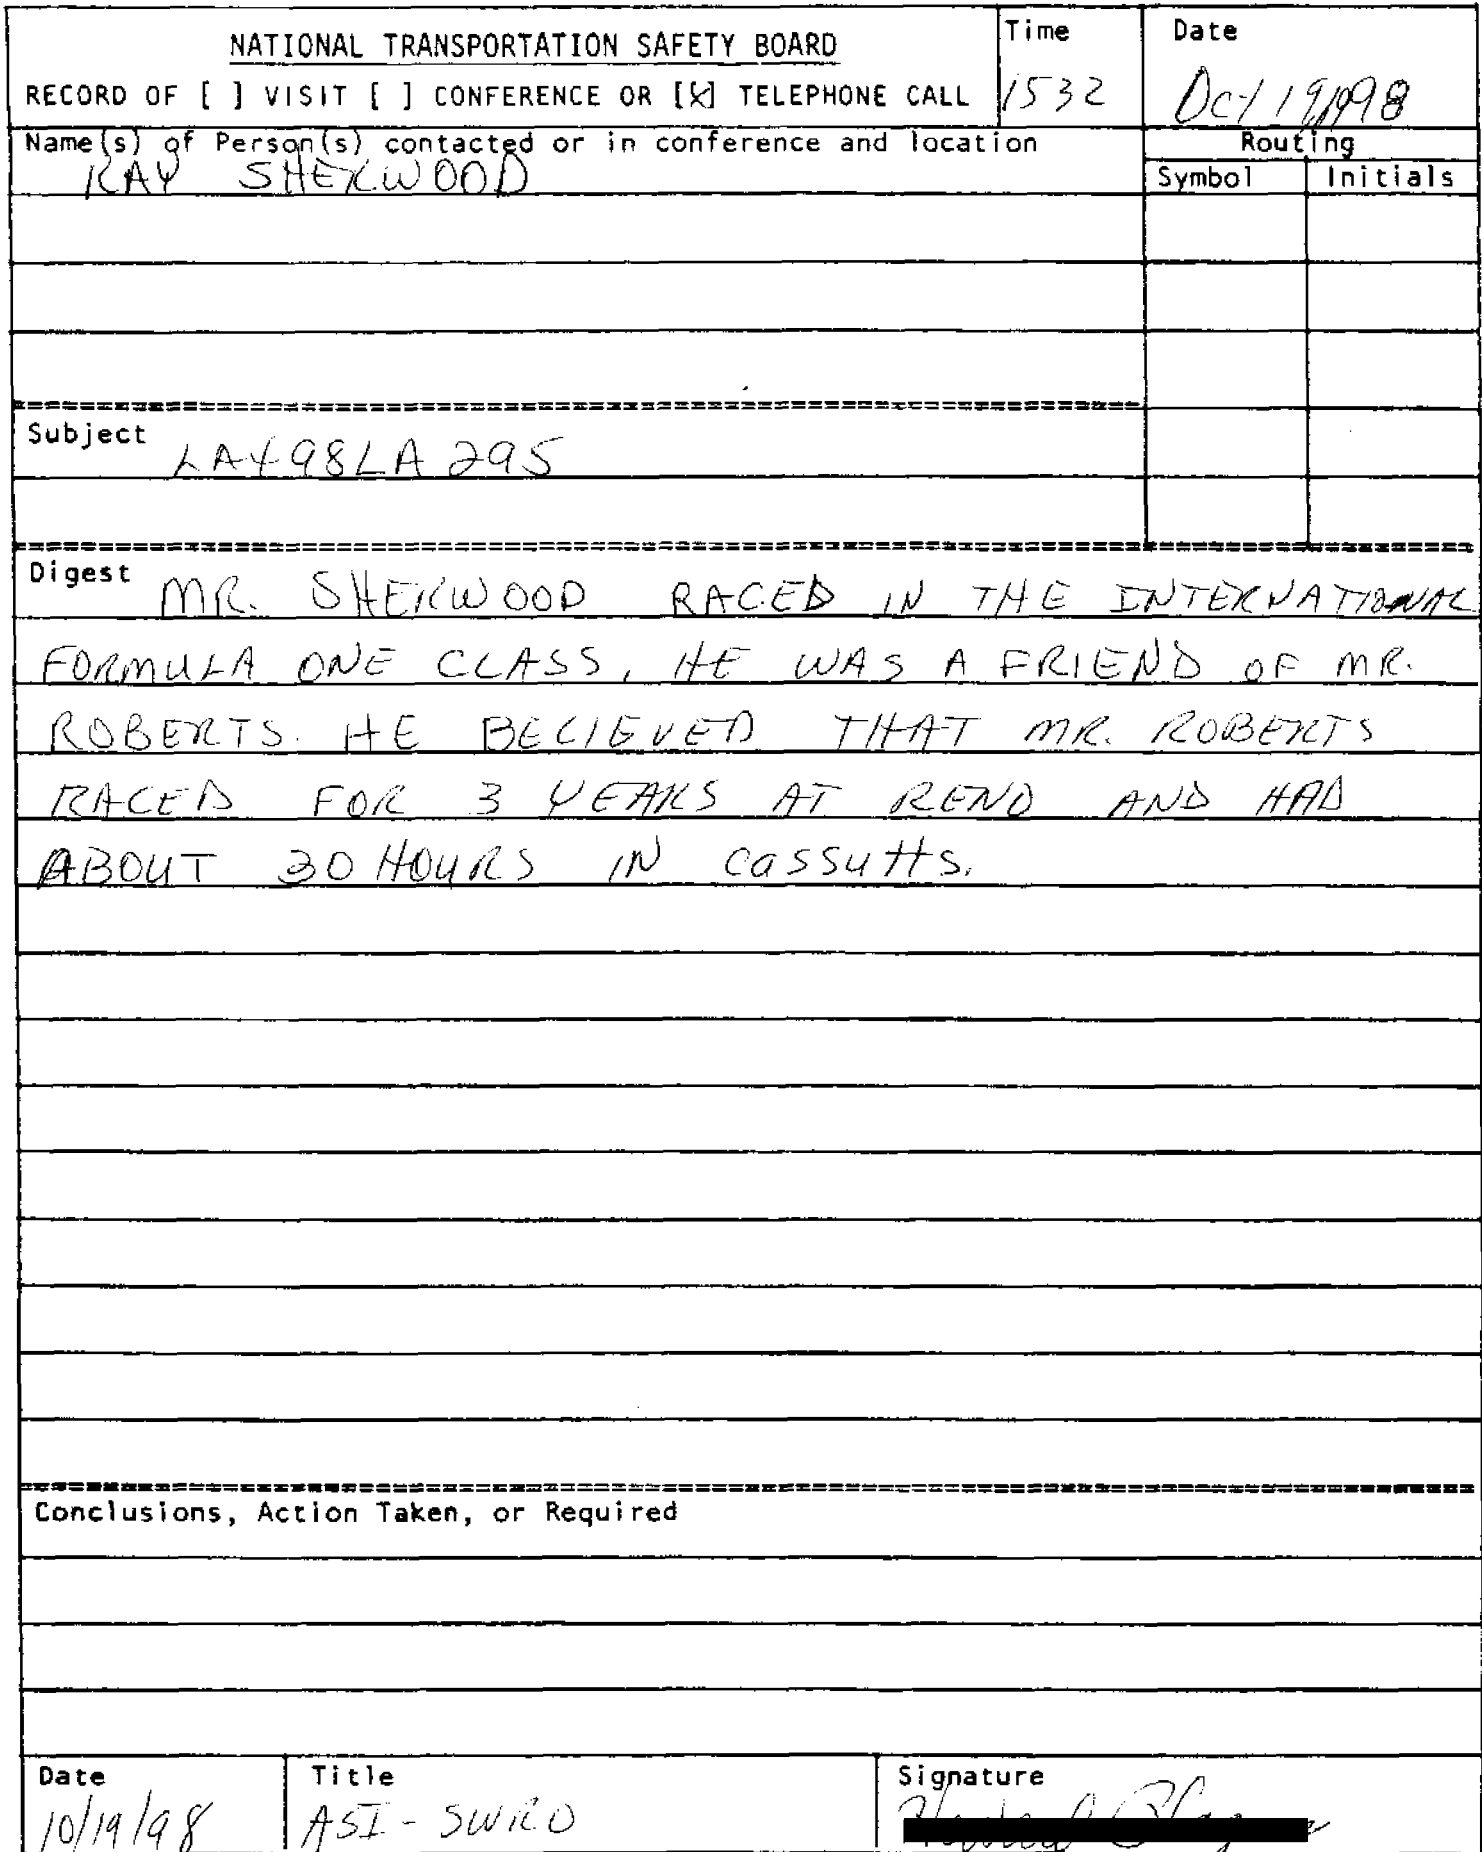 NATIONAL TRANSPORTATION SAFETY BOARD
RECORD OF [ ] VISIT [ ] CONFERENCE OR [X] TELEPHONE CALL
Time
1532
Date
Oct 19, 1998
Name(s) of Person(s) contacted or in conference and location
RAY SHERWOOD
Routing
Symbol Initials
Subject LAX98LA295
Digest MR. SHERWOOD RACED IN THE INTERNATIONAL
FORMULA ONE CLASS, HE WAS A FRIEND OF MR.
ROBERTS. HE BELIEVED THAT MR. ROBERTS
RACED FOR 3 YEARS AT RENO AND HAD
ABOUT 30 HOURS IN CASSUTTS.
Conclusions, Action Taken, or Required
Date
10/19/98
Title
ASI - SWRO
Signature